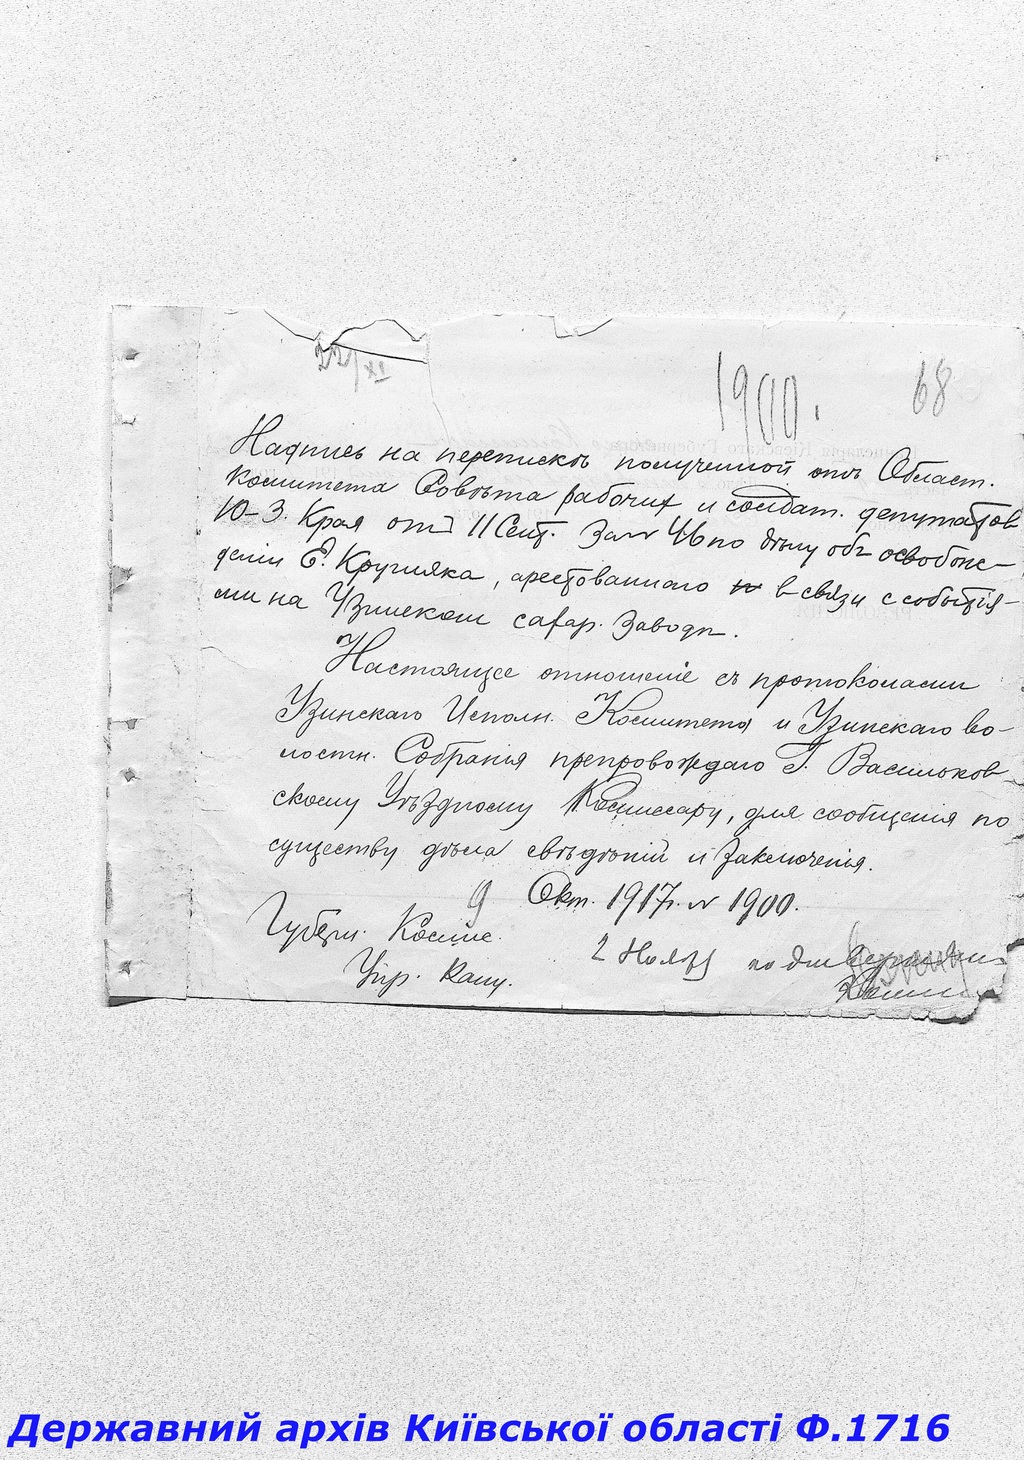 22/XI
1900.
68
Надпись на перепискѣ полученной отъ Област.
Комитета Совѣта рабочих и солдат. депутатов
Ю-З. Края отъ 11 Сент. За № 46 по дѣлу объ освобож-
деніи Е. Кругляка, арестованнаго в связи с событія-
ми на Узинском сахар. Заводѣ.
Настоящее отношеніе съ протоколами
Узинскаго Исполн. Комитета и Узинскаго во-
лостн. Собранія препровождаю Г. Васильков-
скому Уѣздному Комиссару, для сообщенія по
существу дѣла свѣдѣній и заключенія.
9 Окт. 1917 г. № 1900.
Губерн. Комис.
2 Ноября
Упр. Канц.